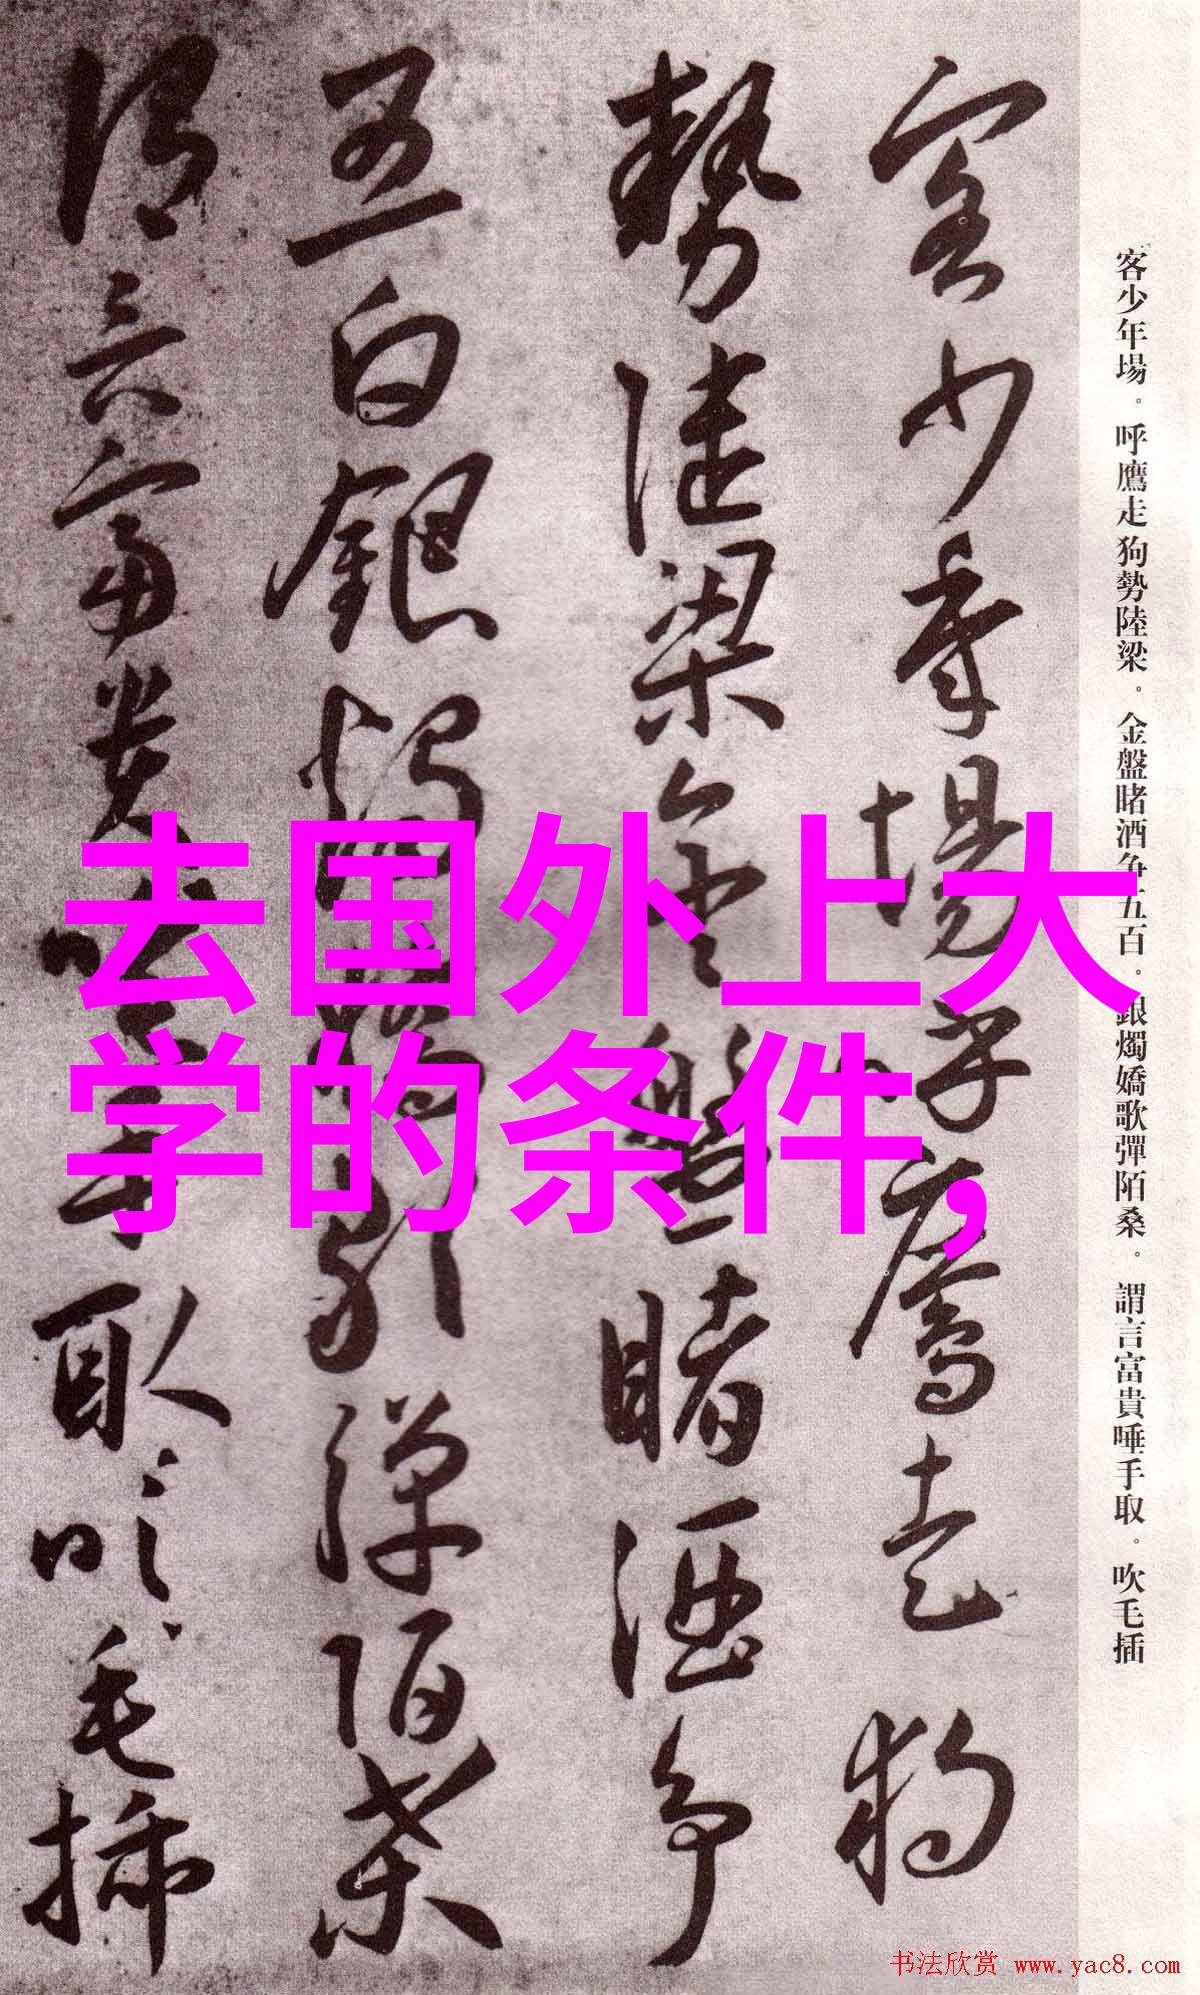 客少年場。呼鷹走狗勢陸梁。金盤賭酒争五百。銀燭嬌歌彈陌桑。謂言富貴唾手取。吹毛插
客少年場呼鷹走狗
勢陸梁金盤賭酒争
五白銀燭嬌歌彈陌桑
謂言富貴唾手取吹毛插
去国外上大
学的条件,
书法欣赏 www.yac8.com